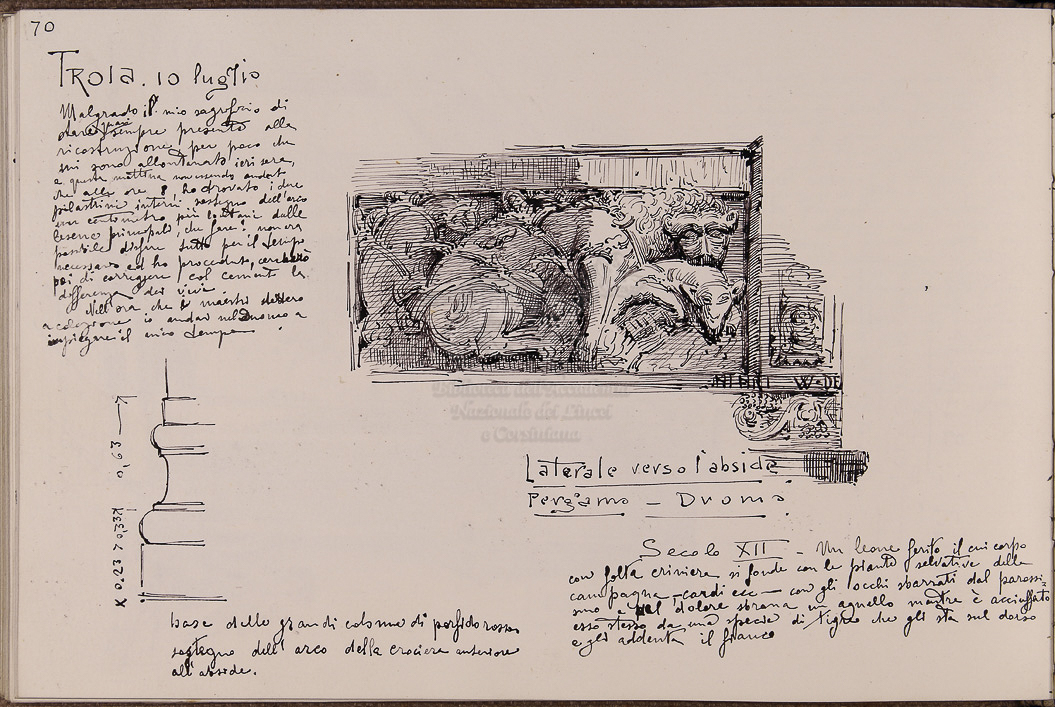 70
TROIA. 10 luglio
Malgrado il mio sagrificio di
stare quasi sempre presente alla
ricostruzione per poco che
mi sono allontanato ieri sera,
e questa mattina non essendo andato
che alle ore 8, ho trovato i due
pilastrini interni sostegno dell'arco
un centimetro più lontani dalle
lesene principali; che fare? non era
possibile disfare tutto per il tempo
necessario ed ho proceduto, cercherò
poi di correggere col cemento la
differenza dei vivi.
Nell'ora che i maestri stettero
a colazione io andai nel Duomo a
impiegare il mio tempo.
0,63
0,33
0.23
base delle grandi colonne di porfido rosso
sostegno dell'arco della crociera anteriore
all'abside.
W-DE
Biblioteca dell'Accademia
Nazionale dei Lincei
e Corsiniana
Laterale verso l'abside
Pergamo - Duomo
Secolo XII - Un leone ferito il cui corpo
con folta criniera si fonde con le piante selvatiche della
campagna - cardi ecc - con gli occhi sbarrati dal parossi-
smo e dal dolore sbrana un agnello mentre è acciuffato
esso stesso da una specie di tigre che gli sta sul dorso
e gli addenta il fianco